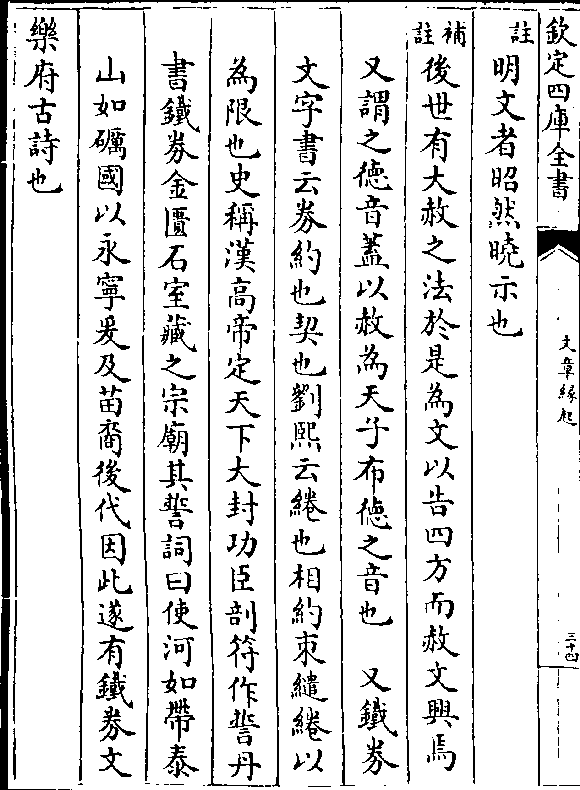 欽定四庫全書
文章緣起
三十四
註
明文者昭然曉示也
補註
後世有大赦之法於是為文以告四方而赦文興焉
又謂之德音蓋以赦為天子布德之音也　又鐵券
文字書云券約也契也劉熙云綣也相約束繾綣以
為限也史稱漢高帝定天下大封功臣剖符作誓丹
書鐵券金匱石室藏之宗廟其誓詞曰使河如帶泰
山如礪國以永寧爰及苗裔後代因此遂有鐵券文
樂府古詩也